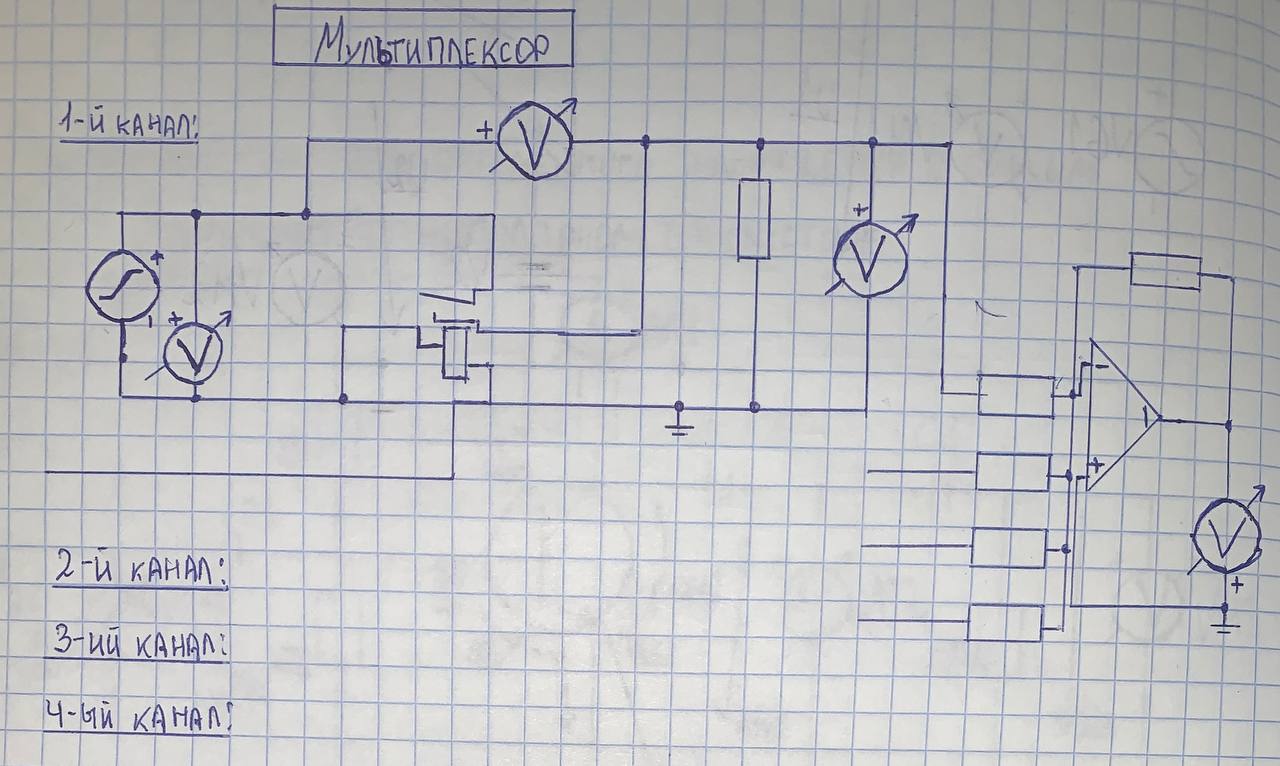 МУЛЬТИПЛЕКСОР
1-Й КАНАЛ:
+ V
+
- + V
+ V
-
+
V
+
2-Й КАНАЛ:
3-ИЙ КАНАЛ:
4-ЫЙ КАНАЛ: